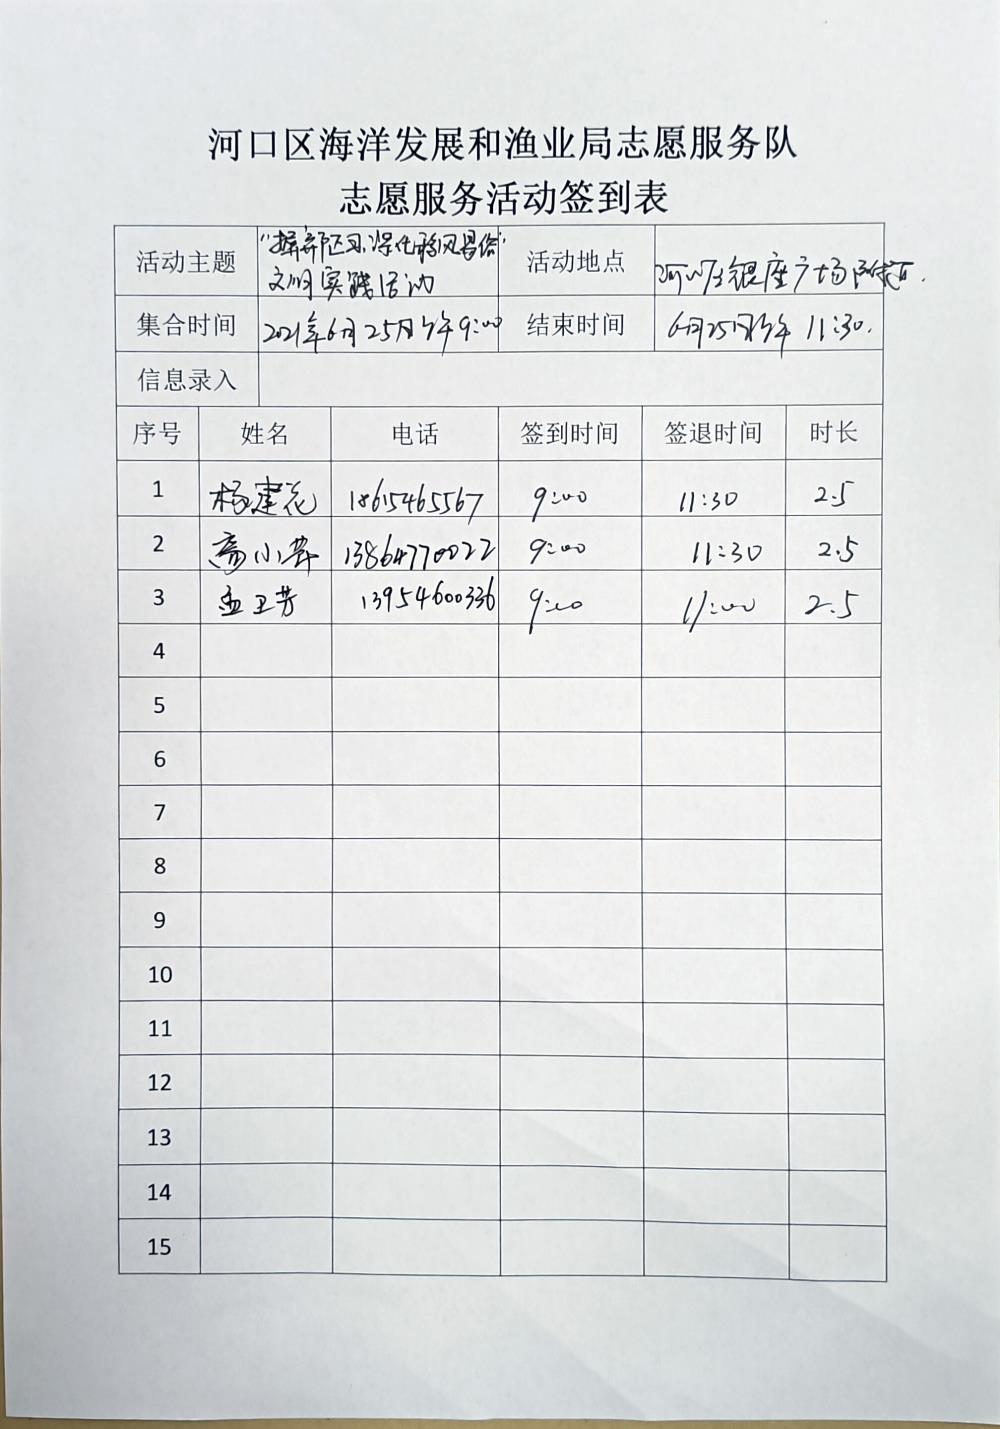 河口区海洋发展和渔业局志愿服务队
志愿服务活动签到表
活动主题 "摒弃陋习、深化移风易俗" 文明实践活动 活动地点 河口区银座广场附近.
集合时间 2021年6月25日上午9:00 结束时间 6月25日上午 11:30.
信息录入
序号 姓名 电话 签到时间 签退时间 时长
1 杨建花 1865465567 9:00 11:30 2.5
2 高小翠 13864770022 9:00 11:30 2.5
3 孟卫芳 13954600336 9:00 11:00 2.5
4
5
6
7
8
9
10
11
12
13
14
15